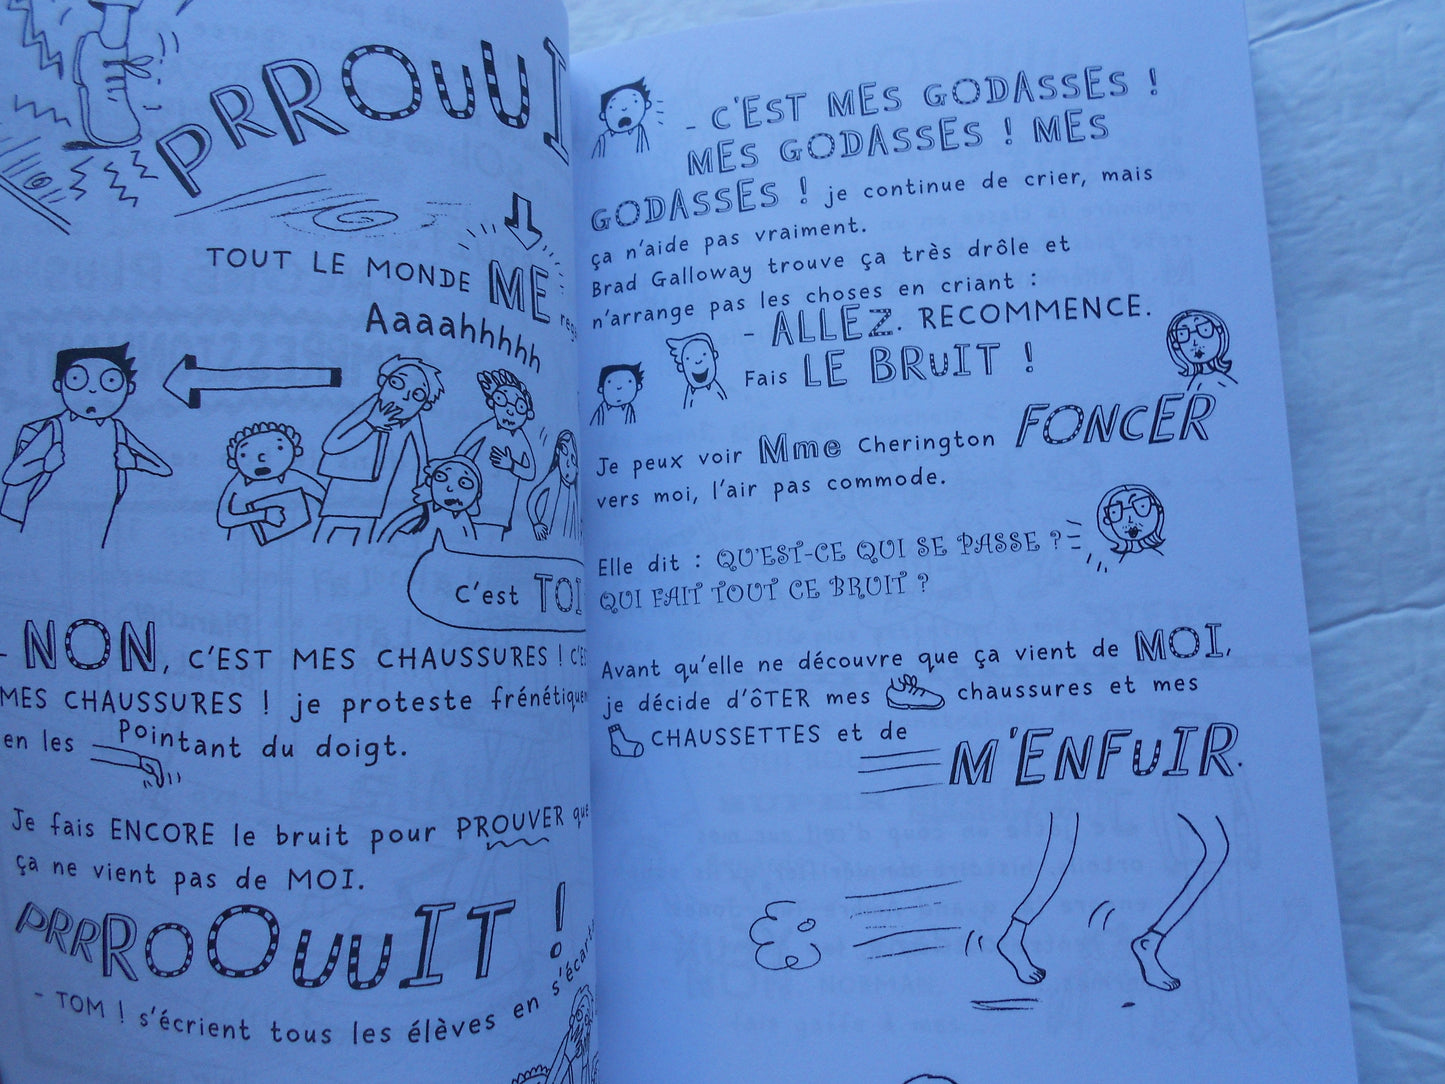 PRROUUI
TOUT LE MONDE ME
Aaaahhhhh
C'est TOI
- NON, C'EST MES CHAUSSURES !
MES CHAUSSURES ! je proteste
en les pointant du doigt.
Je fais ENCORE le bruit pour PROUVER que
ça ne vient pas de MOI.
PRRROOUUIT !
- TOM ! s'écrient tous les élèves en s'écart
- C'EST MES GODASSES !
MES GODASSES ! MES
GODASSES ! je continue de crier, mais
ça n'aide pas vraiment.
Brad Galloway trouve ça très drôle et
n'arrange pas les choses en criant :
- ALLEZ. RECOMMENCE.
Fais LE BRUIT !
Je peux voir Mme Cherington FONCER
vers moi, l'air pas commode.
Elle dit : QU'EST-CE QUI SE PASSE ?
QUI FAIT TOUT CE BRUIT ?
Avant qu'elle ne découvre que ça vient de MOI,
je décide d'ÔTER mes chaussures et mes
CHAUSSETTES et de
M'ENFUIR.